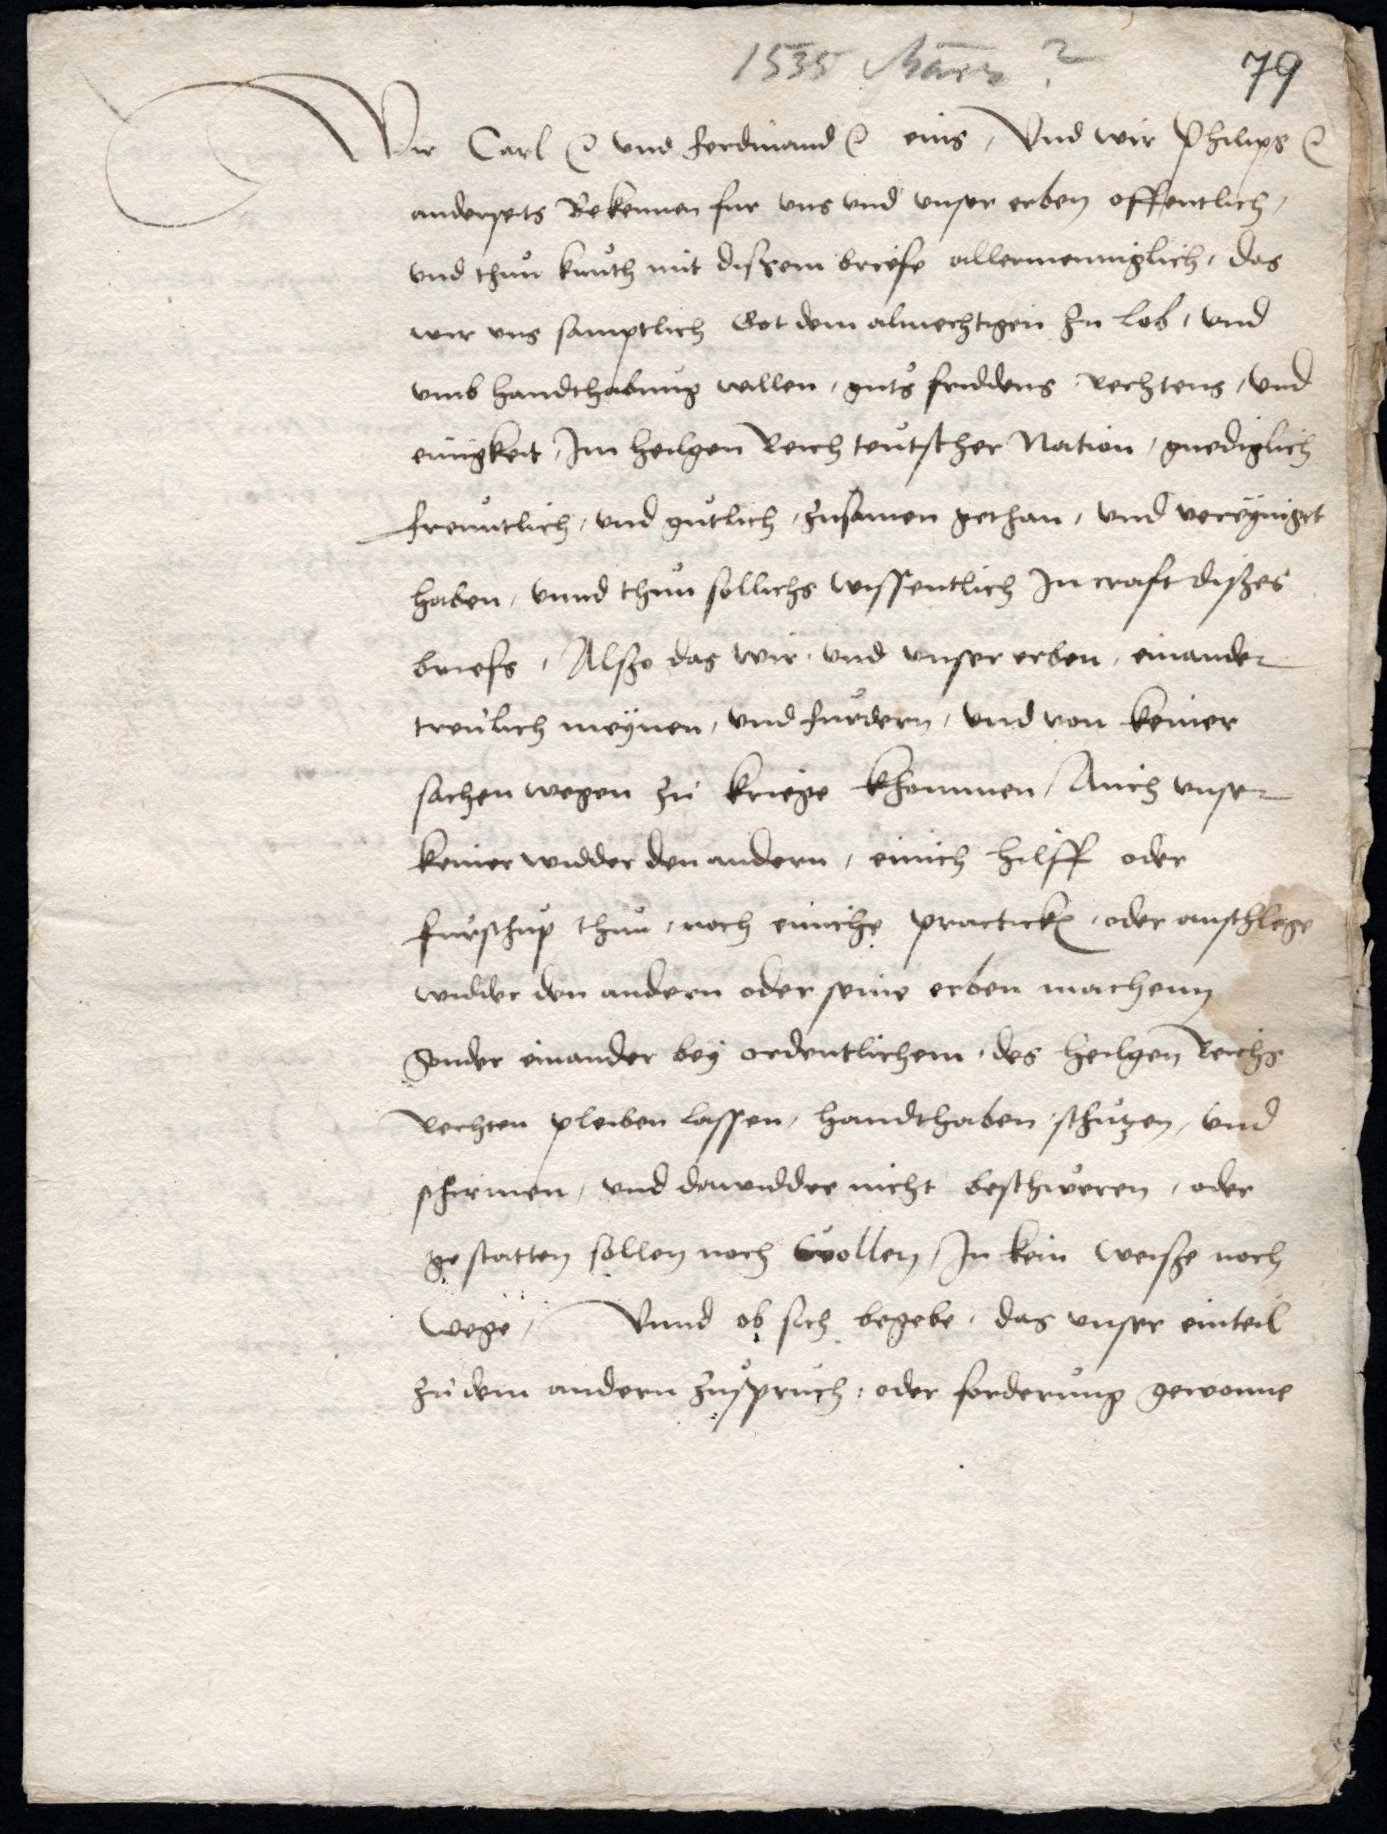 1535 März ?
79
Wir Carl ⁊c und Ferdinand ⁊c eins, Und wir Philips ⁊c
andersets Bekennen fur uns und unser erben offentlich,
und thun kunth mit dißem briefe allermenniglich, das
wir uns samptlich Got dem almechtigen zu lob, und
umb handthabung willen, guts friddens, rechtens, und
einigkeit, Im heilgen Reich teutscher Nation, gnediglich
freuntlich, und gutlich, zusamen gethan, und vereyniget
haben, unnd thun sollichs wissentlich In craft dißes
briefs, Alßo das wir, und unser erben, einander
treulich meynen, und furdern, und von keiner
sachen wegen zu kriege khommen, Auch unser
keiner widder den andern, einich hilff oder
furschup thun, noch einiche practick, oder anschlege
widder den andern oder seine erben machenn
Sonder einander bey ordentlichem, des heilgen Reichs
Rechten pleiben lassen, handthaben, schutzen, und
schirmen, und dawidder nicht beschweren, oder
gestatten sollen noch wollen, In kein weiße noch
wege, Unnd ob sich begebe, das unser einteil
zu dem andern zuspruch, oder forderung gewonne